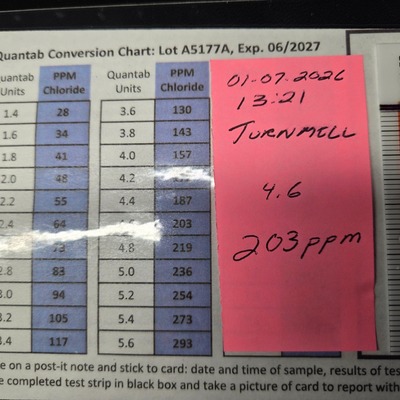 Quantab Conversion Chart: Lot A5177A, Exp. 06/2027
Quantab Units PPM Chloride Quantab Units PPM Chloride
1.4 28 3.6 130
1.6 34 3.8 143
1.8 41 4.0 157
2.0 48 4.2
2.2 55 4.4 187
2.4 64 203
73 4.8 219
2.8 83 5.0 236
3.0 94 5.2 254
3.2 105 5.4 273
3.4 117 5.6 293
01-07-2026
13:21
TURNMELL
4.6
203 ppm
e on a post-it note and stick to card: date and time of sample, results of tes
e completed test strip in black box and take a picture of card to report with